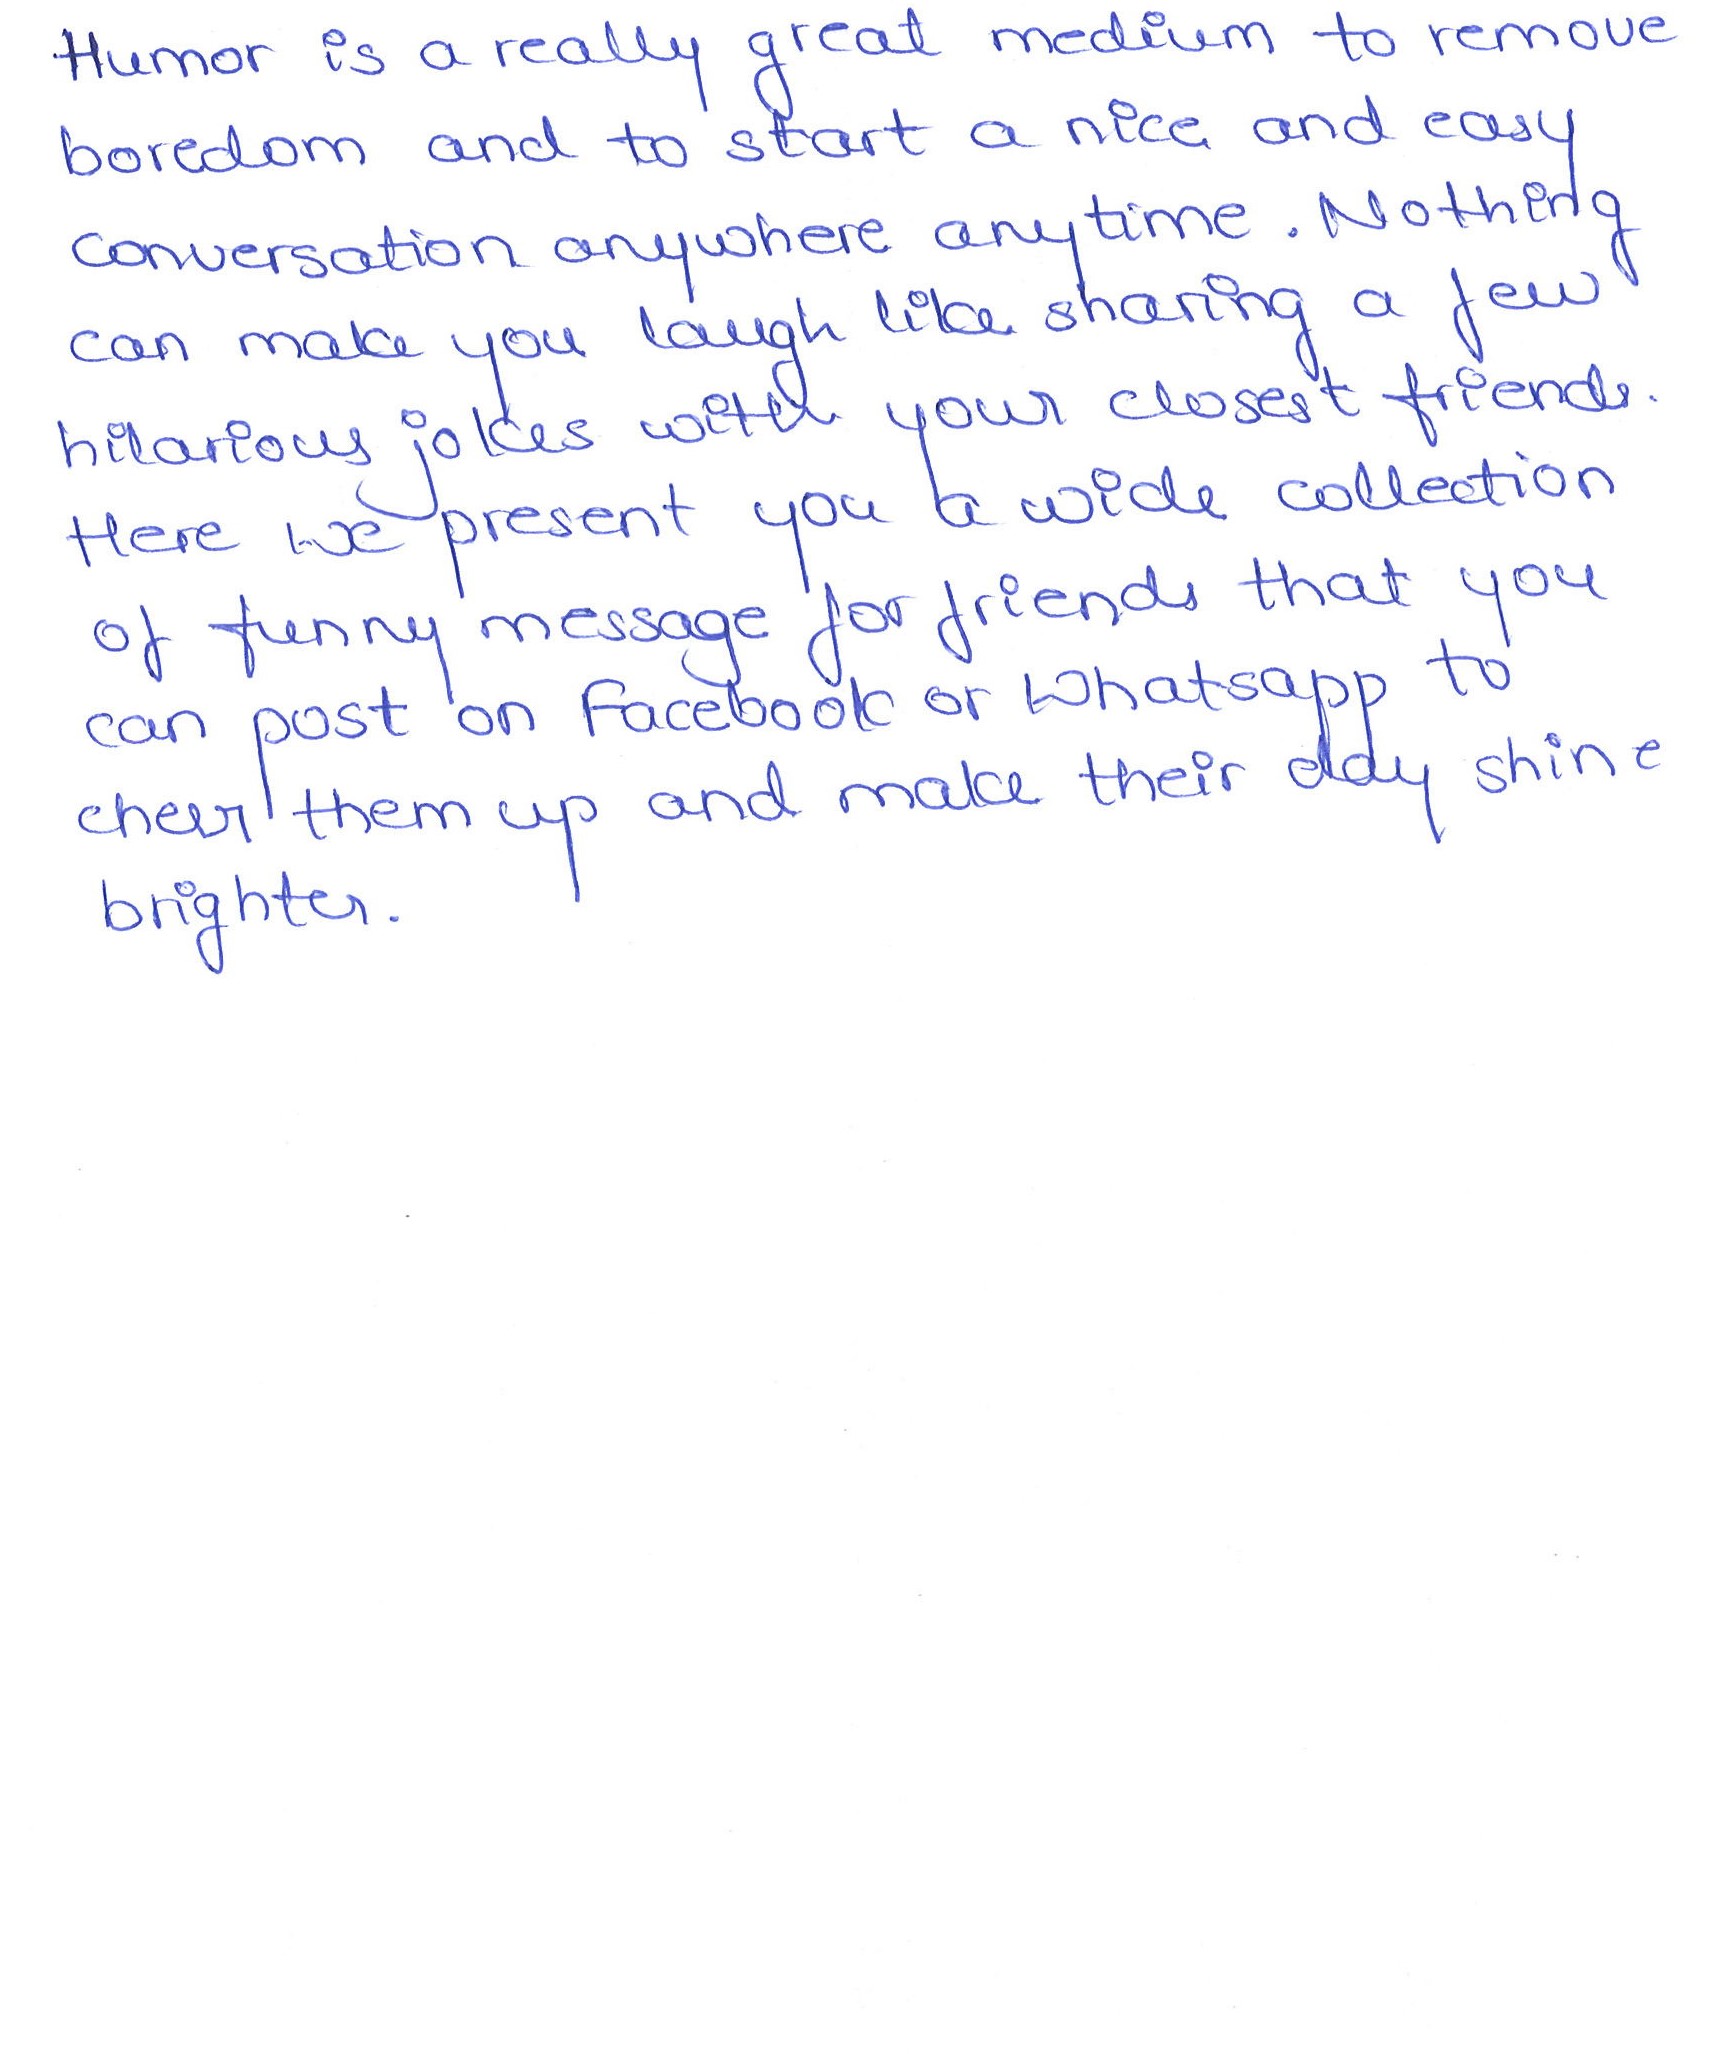 Humor is a really great medium to remove
boredom and to start a nice and easy
conversation anywhere anytime. Nothing
can make you laugh like sharing a few
hilarious jokes with your closest friends.
Here we present you a wide collection
of funny message for friends that you
can post on Facebook or Whatsapp to
cheer them up and make their day shine
brighter.